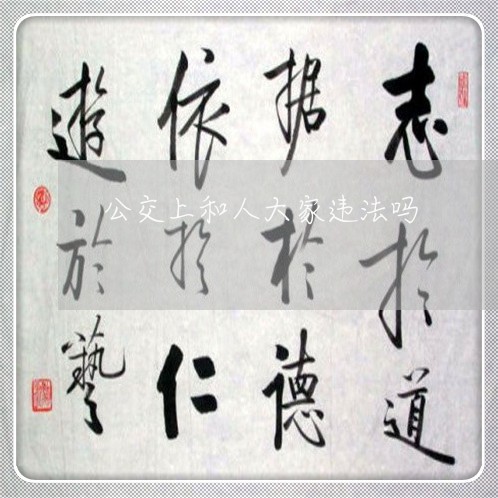 志於道
据於德
依於仁
遊於藝
公交上和人大家违法吗